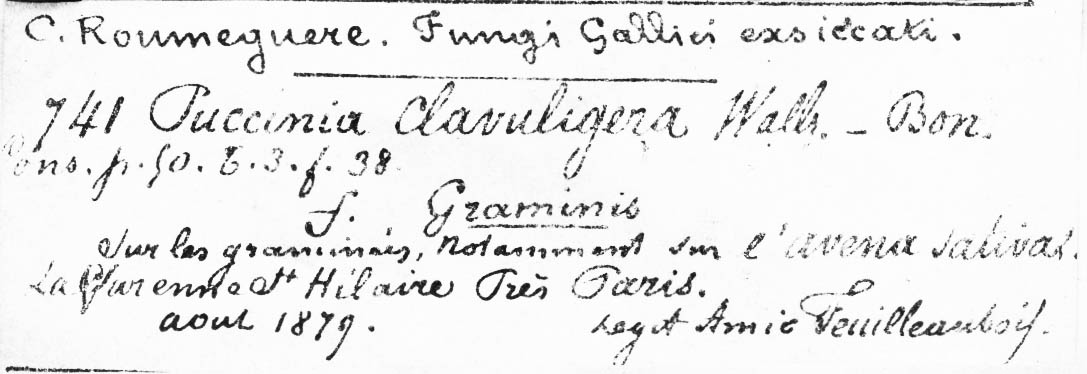 C. Roumeguere. Fungi Gallici exsiccati.
741 Puccinia Clavuligera Wallr. – Bon.
p. 50. t. 3. f. 38.
f. Graminis
Sur les graminées, Notamment sur l'avena sativas.
La Varenne St Hilaire Près Paris.
aout 1879. Legit Amic Feuilleaubois.